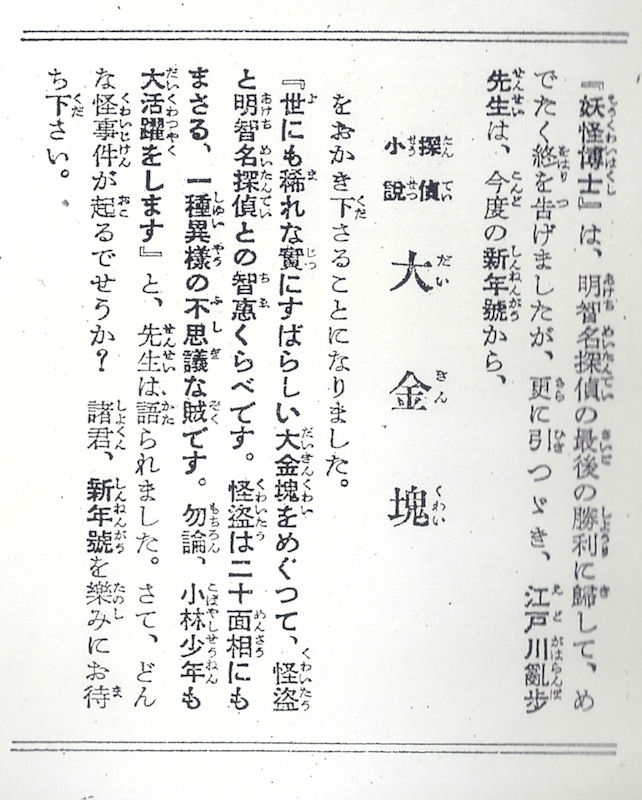 『妖怪博士』は、明智名探偵の最後の勝利に歸して、め
でたく終を告げましたが、更に引つゞき、江戸川亂歩
先生は、今度の新年號から、
探偵
小說
大金塊
をおかき下さることになりました。
『世にも稀れな寶にすばらしい大金塊をめぐつて、怪盜
と明智名探偵との智惠くらべです。怪盜は二十面相にも
まさる、一種異樣の不思議な賊です。勿論、小林少年も
大活躍をします』と、先生は語られました。さて、どん
な怪事件が起るでせうか？　諸君、新年號を樂みにお待
ち下さい。